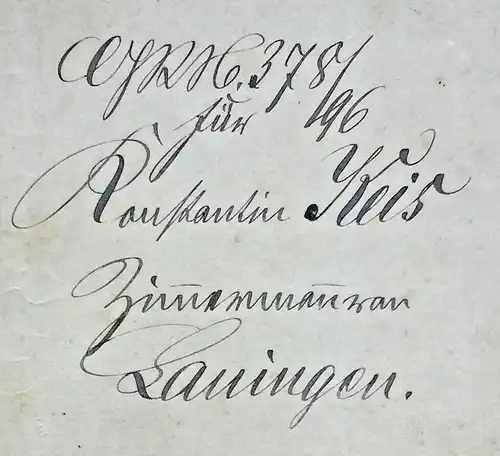 GRN. 378/96
für
Konstantin Keis
Zim̅erman̅ von
Lauingen.